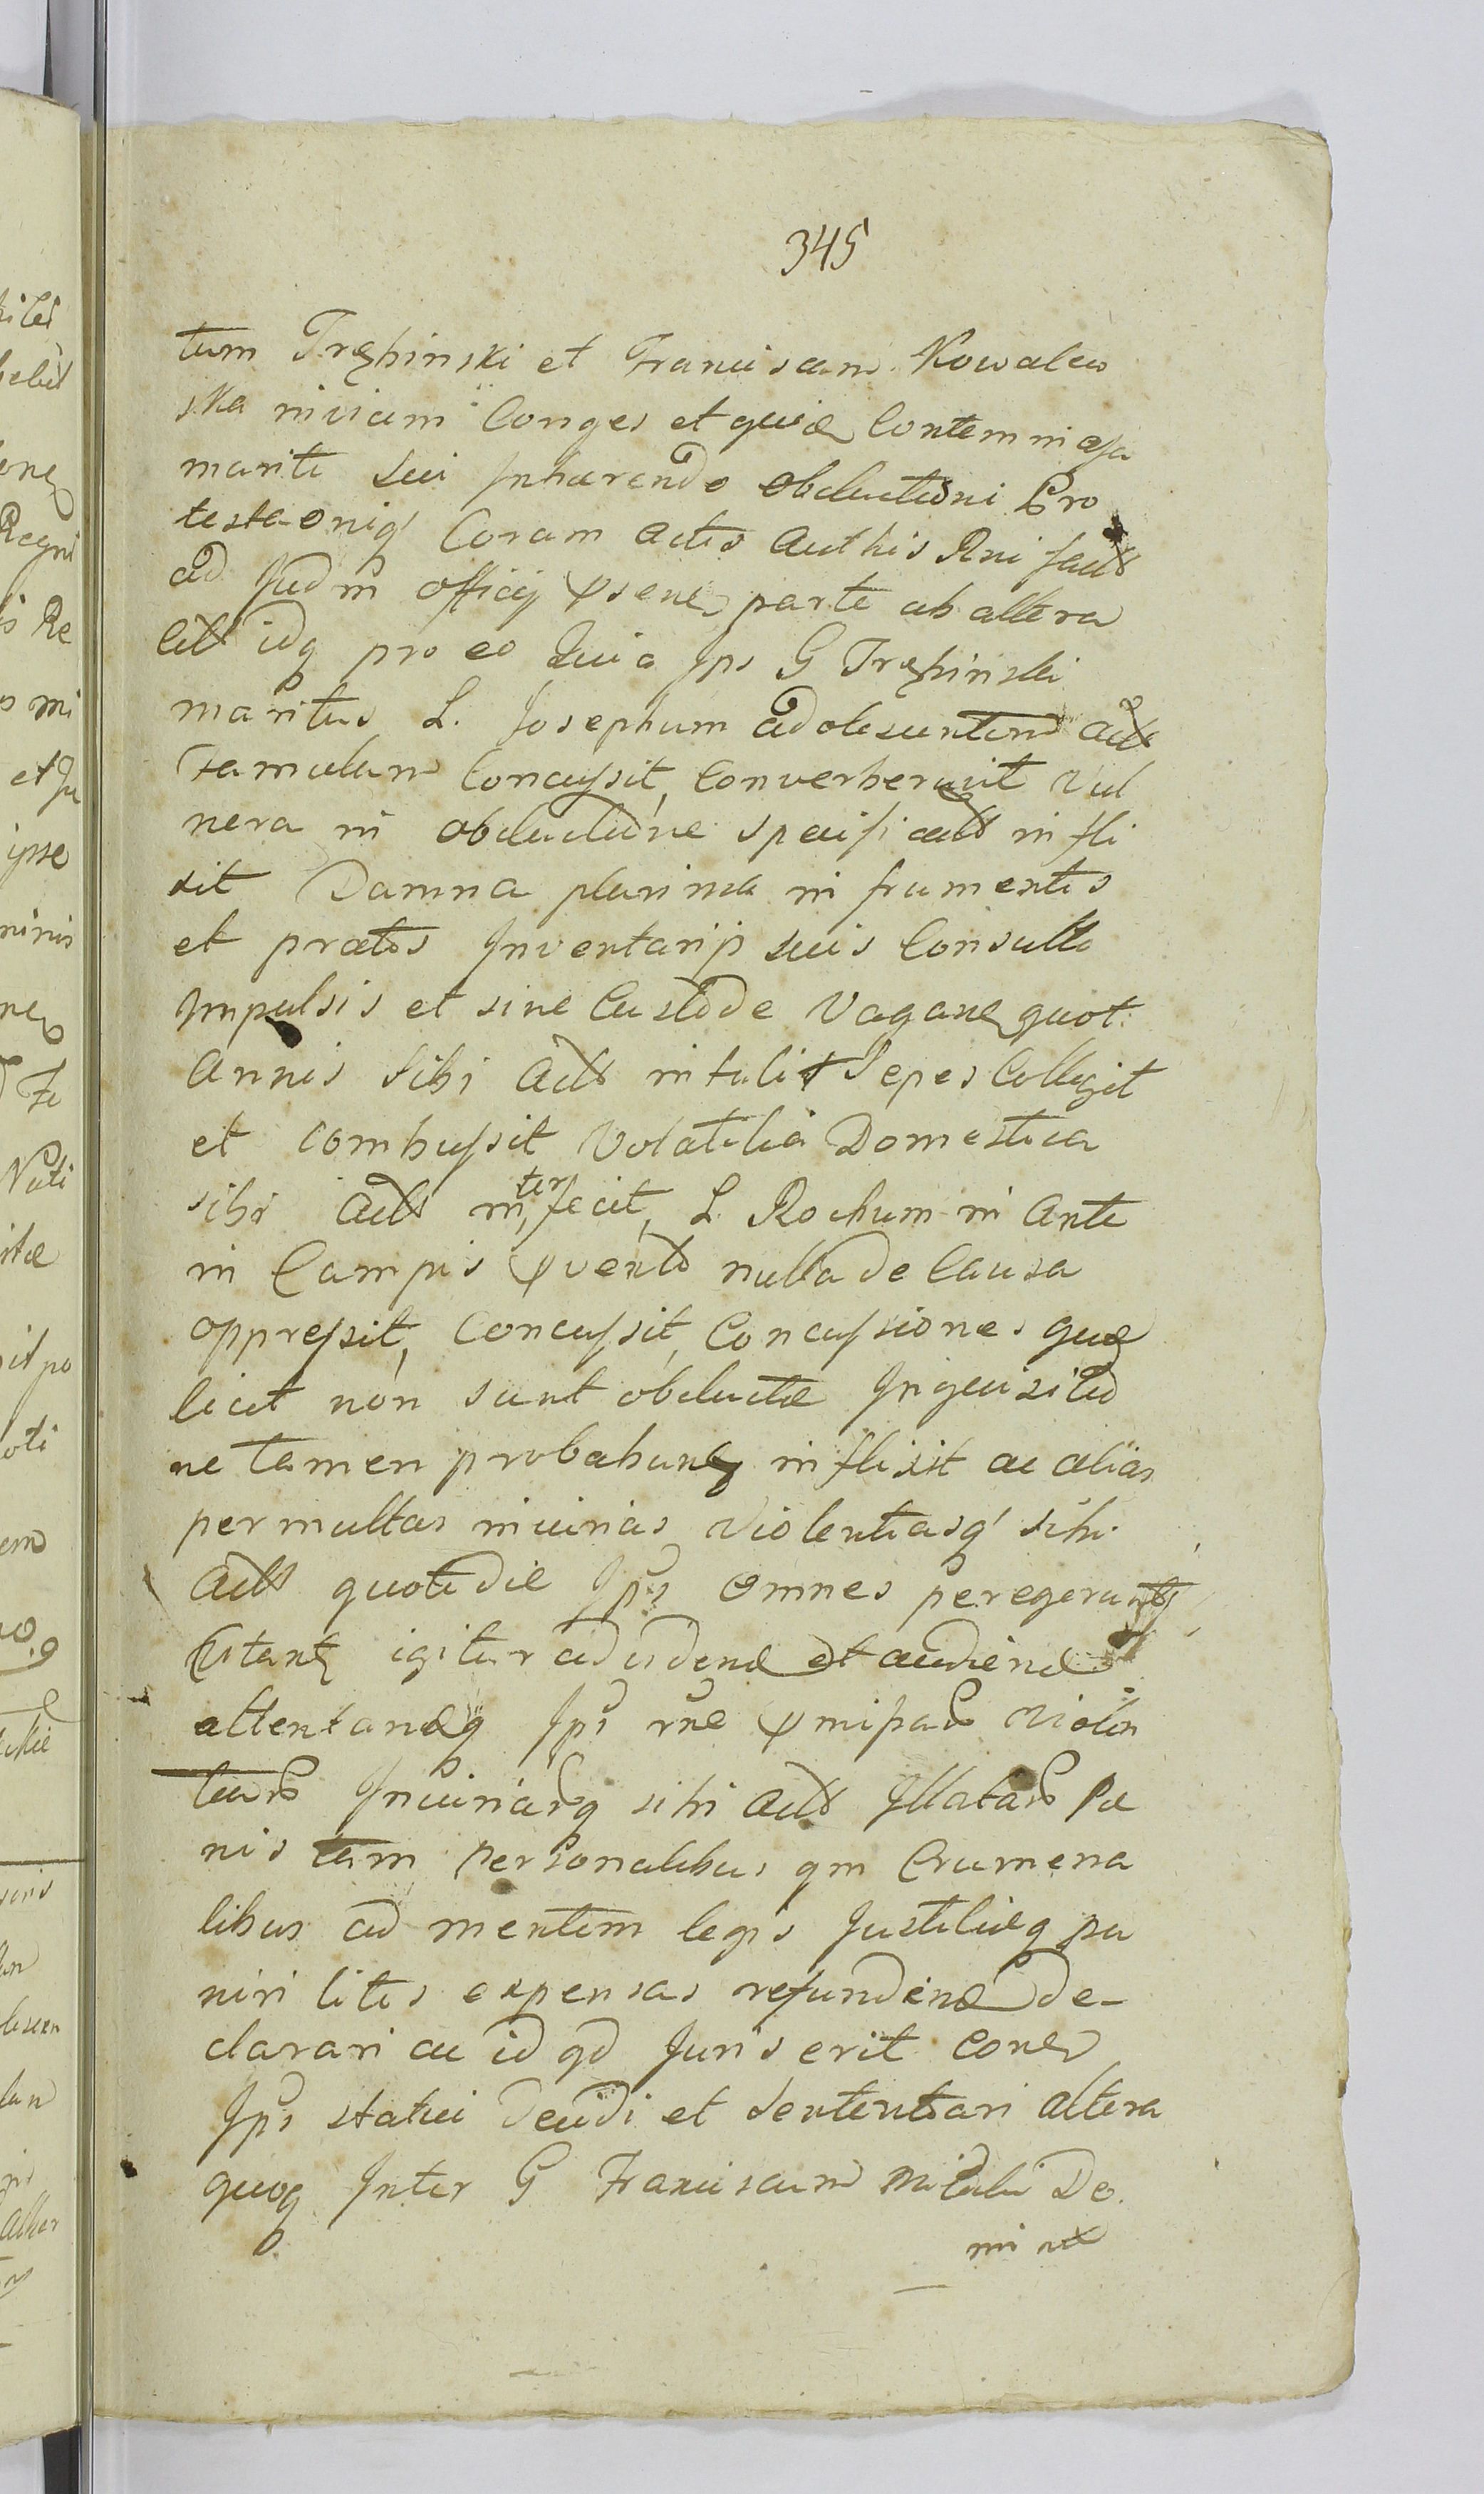 345
tum Trębinski et Franciscam Kowalew
ska invicem Conges et quidem Contemni assa
mariti sui Inhaerendo obductioni Pro
testaoniq' Coram actis Authis Rni factt
ad Judm officij psene parte ab altera
litt idq pro eo Quia Ips G Trębinski
maritus L. Josephum adolescentem actt
Famulum Concussit, Converberavit Vul
nera in obductione specificatt infli
xit Damna plurima in frumentis
et pratis Inventarijs suis Consulto
Impulsis et sine Custode Vagane quot
Annis Sibi Actt intulit Sepes Collegit
et combussit Volatilia Domestica
sibi Actt interfecit, L. Rochum in Ante
in Campis pventt nulla de Causa
oppressit, Concussit, Concussiones quae
licet non sunt obductae Inquisitio
ne tamen probabunt inflixit ac alias
permultas iniurias Violentiasq' sibi
Actt quotidie Ipsi omnes peregerunt
Citant igitur ad vidend et audiend
attentandq Ipsi rne pmissar Violen
tiar Iniuriarq sibi actt Illatar Pae
nis tam personalibus qm Crumena
libus ad mentem legis Justitiaeq pu
niri litis expensas refundend de-
clarari ac id qd Juris erit cone
Ipsi statui decidi et sententiari altera
quoq Inter G Franciscum De
mi